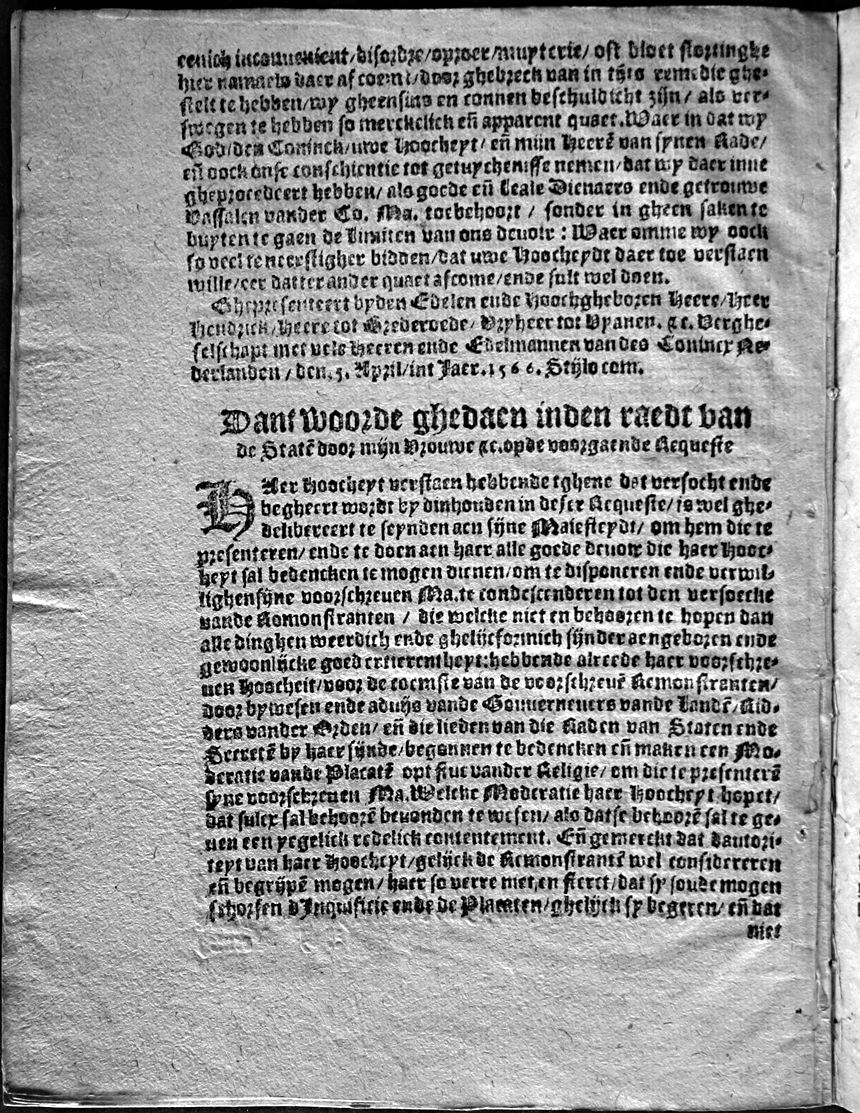 eenich inconuenient/disordre/oproer/muyterie/ oft bloet stortinghe
hier namaels daer af coemt/door ghebreck van in tijts remedie ghe-
stelt te hebben/wy gheensins en connen beschuldicht zijn/ als ver-
swegen te hebben so merckelick eñ apparent quaet. Waer in dat wy
God/den Coninck/uwe Hoocheyt/ eñ mijn Heerẽ van synen Rade/
eñ oock onse conschientie tot getuychenisse nemen/dat wy daer inne
gheprocedeert hebben/ als goede eñ leale Dienaers ende getrouwe
Vassalen vander Co. Ma. toebehoort / sonder in gheen saken te
buyten te gaen de limiten van ons deuoir : Waer omme wy oock
so veel te neerstigher bidden/dat uwe Hoocheydt daer toe verstaen
wille/eer datter ander quaet afcome/ende sult wel doen.
Ghepresenteert byden Edelen ende Hoochgheboren Heere/Heer
Hendrick/Heere tot Brederoede/ Vryheer tot Vyanen. &c. Verghe-
selschapt met vele Heeren ende Edelmannen van des Conincx Ne-
derlanden / den. 5. April/int Jaer. 1566. Stijlo com.
Dantwoorde ghedaen inden raedt van
de Statẽ door mijn Vrouwe &c. op de voorgaende Requeste
HAer Hoocheyt verstaen hebbende tghene dat versocht ende
begheert wordt by dinhouden in deser Requeste/ is wel ghe-
delibereert te seynden aen sijne Maiesteydt/ om hem die te
presenteren/ ende te doen aen haer alle goede deuoir die haer Hooc-
heyt sal bedencken te mogen dienen/om te disponeren ende verwil-
lighen sijne voorschreuen Ma. te condescenderen tot den versoecke
vande Remonstranten / die welcke niet en behooren te hopen dan
alle dinghen weerdich ende ghelijcformich sijnder aengeboren ende
gewoonlijcke goedertierentheyt: hebbende alreede haer voorschre-
uen Hoocheit/voor de coemste van de voorschreuẽ Remonstranten/
door bywesen ende aduijs vande Gouuerneurs vande Landẽ/ Rid-
ders vander Orden/ eñ die lieden van die Raden van Staten ende
Secretẽ by haer sijnde/begonnen te bedencken eñ maken een Mo-
deratie vande Placatẽ opt stuc vander Religie/ om die te presenterẽ
syne voorschreuen Ma. Welcke Moderatie haer Hoocheyt hopet/
dat sulcx sal behoorẽ beuonden te wesen/ als datse behoorẽ sal te ge-
uen een yegelick redelick contentement. Eñ gemerckt dat dautori-
teyt van haer Hoocheyt/gelijck de Remonstrantẽ wel considereren
eñ begrijpẽ mogen/ haer so verre niet en strect/dat sy soude mogen
schorsen d'Inquisitie ende de Placaten/ghelijck sy begeren/ eñ dat
niet